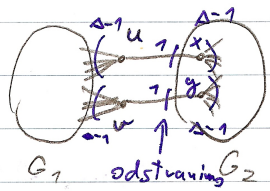 Δ-1 u 1 x Δ-1
Δ-1 v 1 y Δ-1
G₁ odstranimo G₂